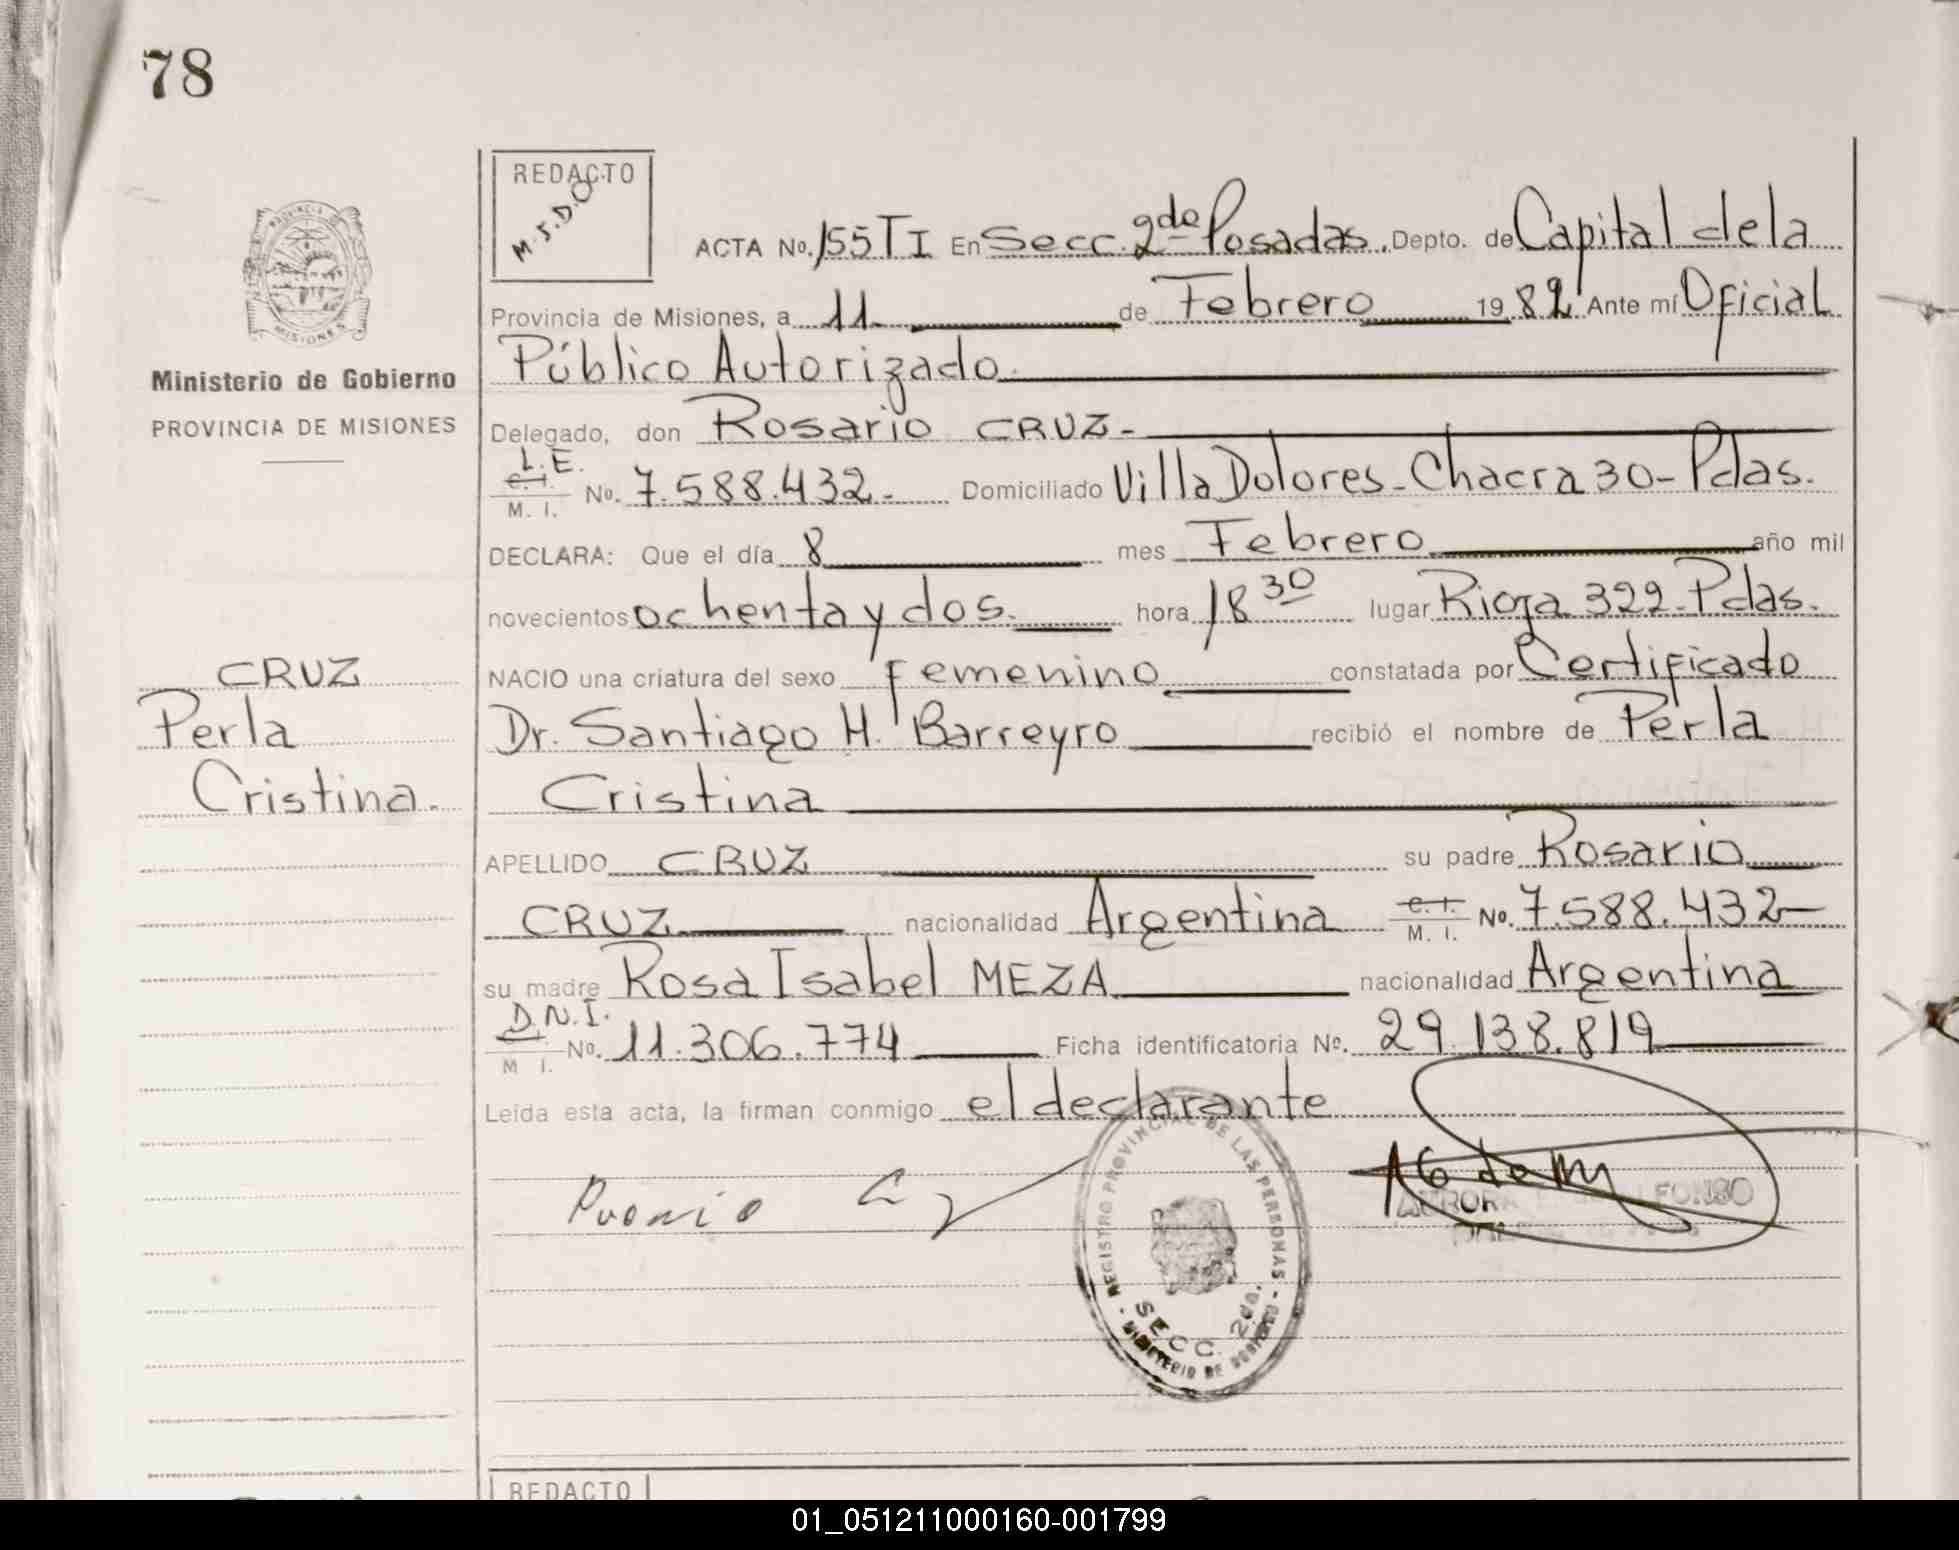 78
REDACTO
M.S.D.O
ACTA No. 155 T I En Secc. 2da Posadas. Depto. de Capital de la
Provincia de Misiones, a 11 de Febrero 1982 Ante mí Oficial
Público Autorizado
Ministerio de Gobierno
PROVINCIA DE MISIONES
Delegado, don Rosario CRUZ-
L.E.
C. I.
M. I. No. 7.588.432- Domiciliado Villa Dolores - Chacra 30 - Pdas.
DECLARA: Que el día 8 mes Febrero año mil
novecientos ochenta y dos. hora 18 30 lugar Rioja 322 - Pdas.
CRUZ
Perla
Cristina.
NACIO una criatura del sexo femenino constatada por Certificado
Dr. Santiago H. Barreyro recibió el nombre de Perla
Cristina
APELLIDO CRUZ su padre Rosario
CRUZ nacionalidad Argentina C. I. M. I. No. 7.588.432-
su madre Rosa Isabel MEZA nacionalidad Argentina
D.N.I.
M I. No. 11.306.774 Ficha identificatoria No. 29.138.819
Leída esta acta, la firman conmigo el declarante
REGISTRO PROVINCIAL DE LAS PERSONAS
SECC. 2da.
MINISTERIO DE GOBIERNO
REDACTO
01_051211000160-001799